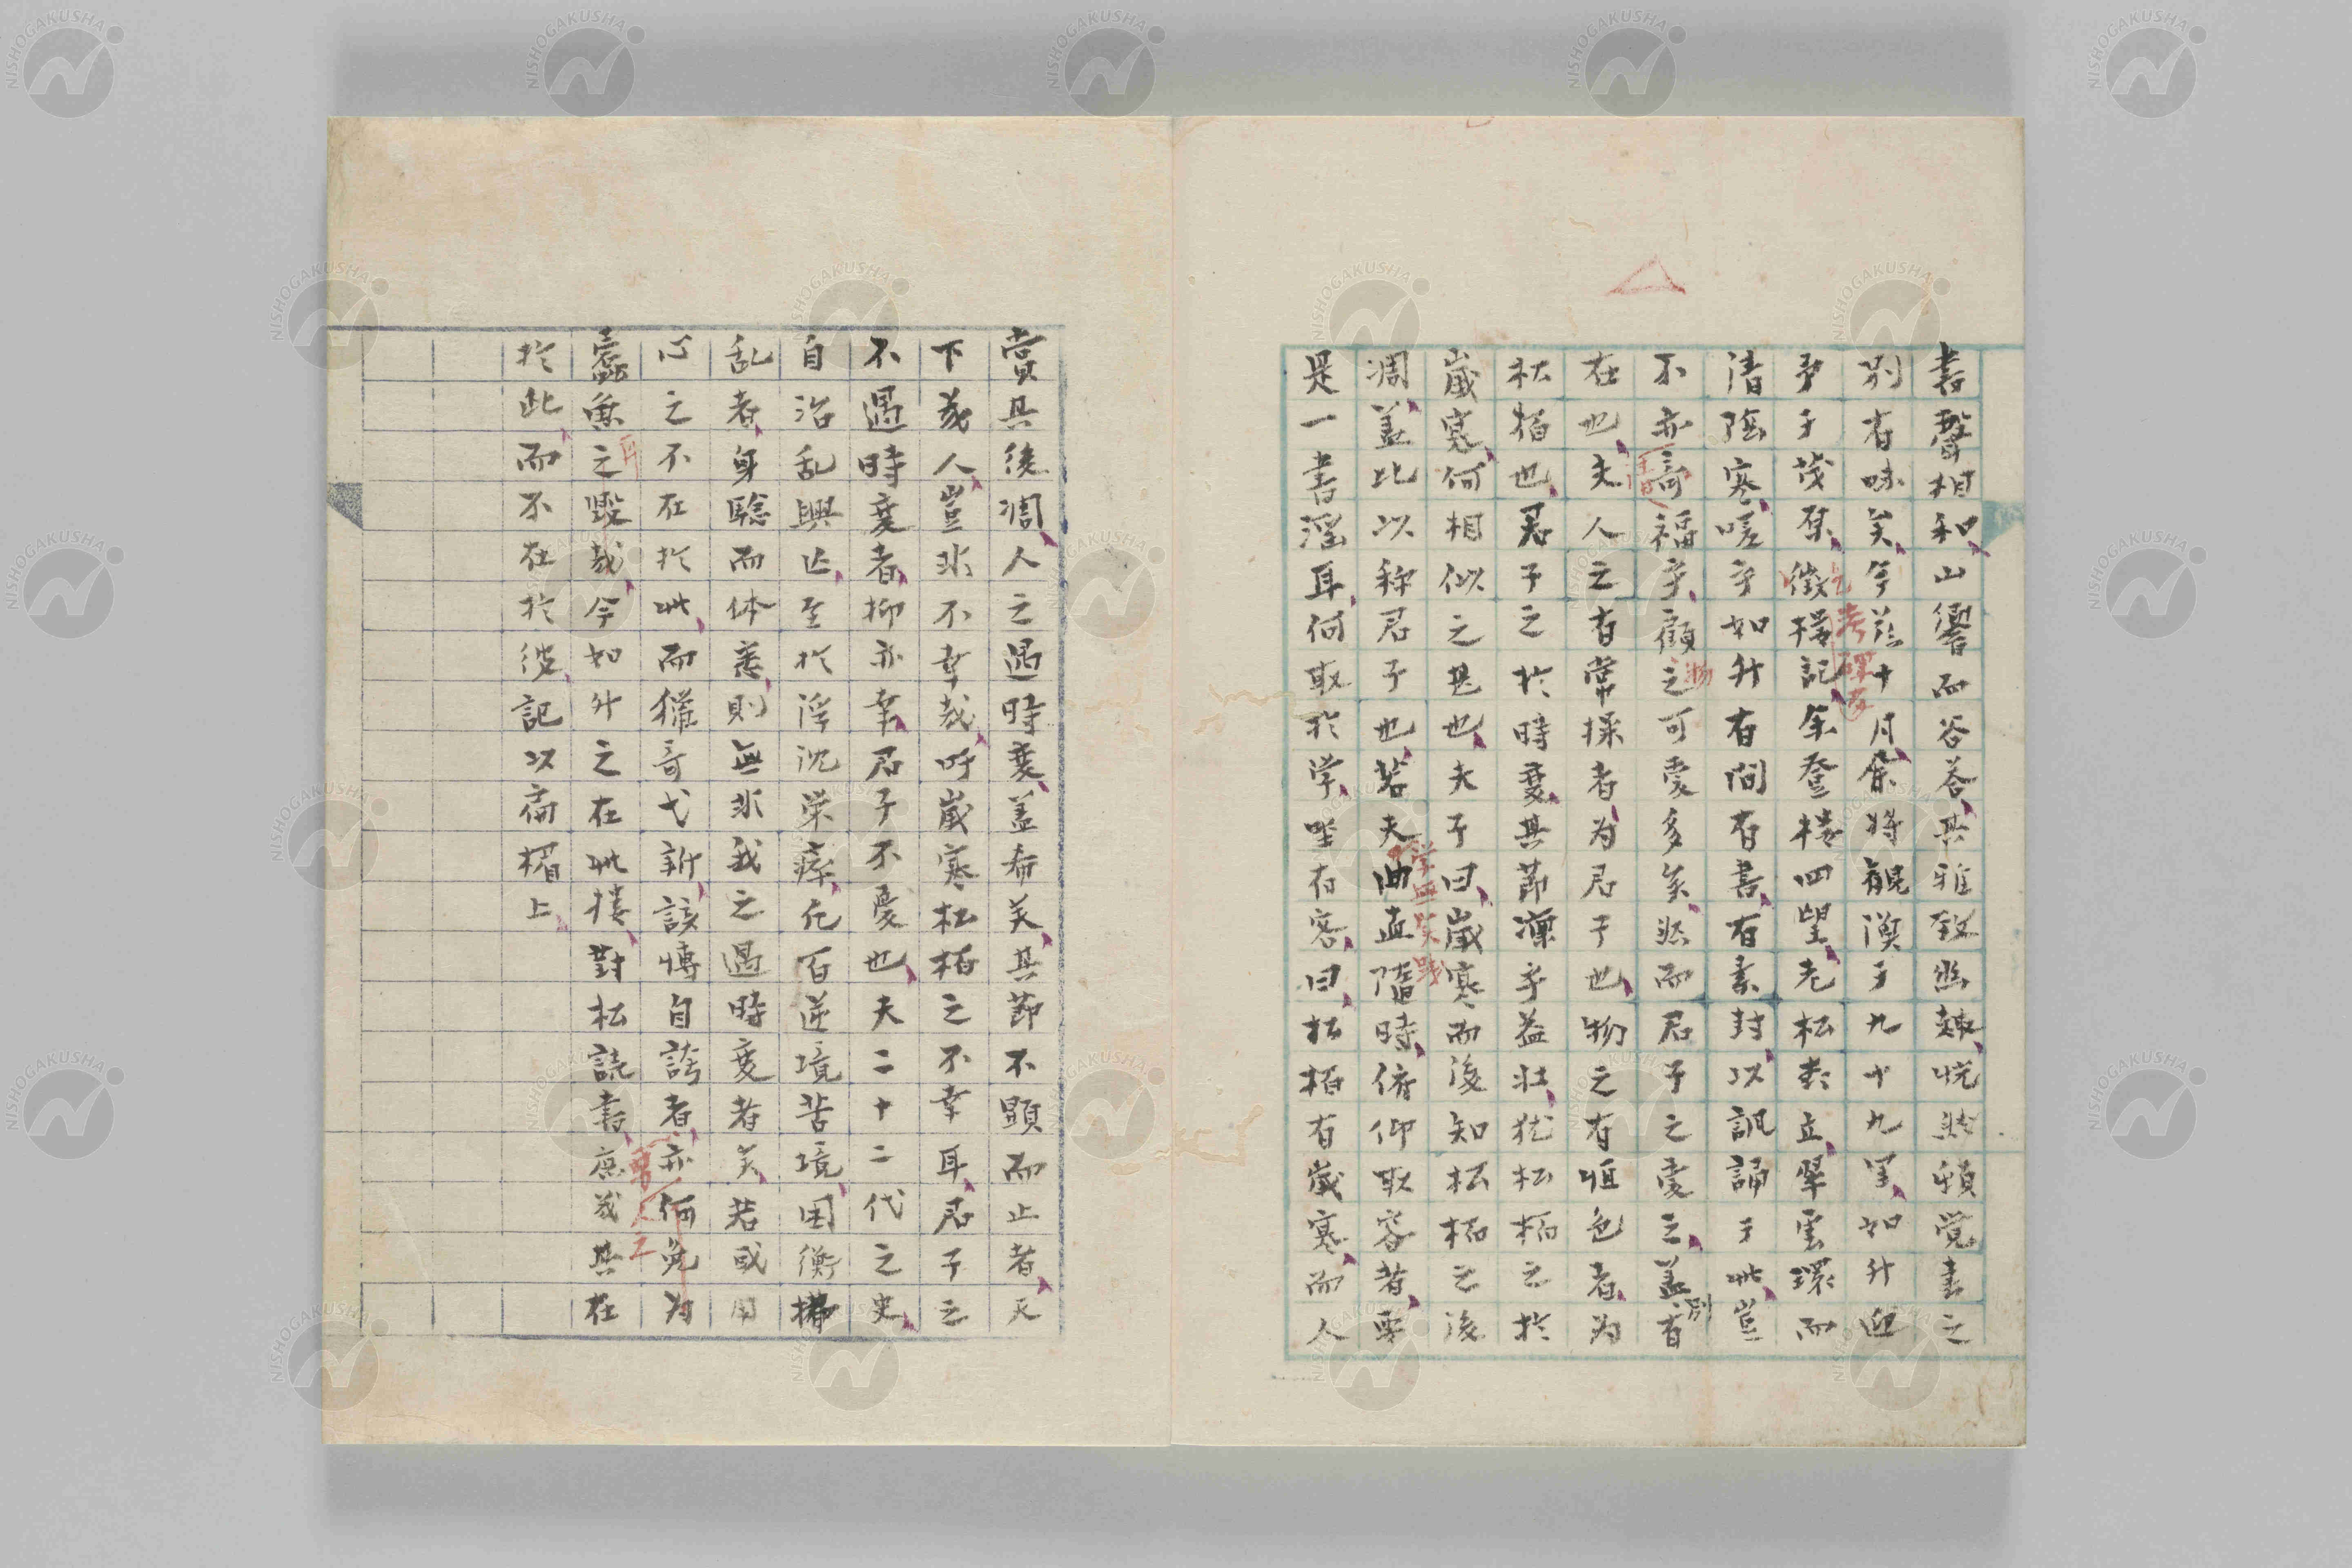 書聲相和山響而谷答其雅致幽趣恍然頓覚書之
別有味矣今玆十月余将観漢于九十九里如舛迎
予于茂原徴撰記余登楼四望老松森立翠雲環而
清陰寒嗟乎如舛有間有書有素封以諷誦于此豈
不亦奇福乎顧之可愛多矣然而君子之愛之盖有別
在也夫人之有常操者为君子也物之有恒色者为
松栢也君子之於時変其節凜乎益壮犹松栢之於
歳寒何相似之甚也夫子曰歳寒而後知松栢之後
凋盖比以称君子也若夫曲直隨時俯仰取容者要
是一書淫耳何取於学唑有客曰松栢有歳寒而人
賞其後凋人之遇時変盖希矣其節不顕而止者天
下幾人豈非不幸哉吁歳寒松栢之不幸耳君子之
不遇時変者抑亦幸君子不憂也夫二十二代之史
自治乱興亡至於浮沈栄瘁凢百逆境苦境困衡拂
乱者身騐而体悉則無非我之遇時変者矣若或用
心之不在於此而猟奇弋新該博自誇者亦何免为
蠧魚之毀哉今如舛之在此楼對松読書庶幾其在
於此而不在於彼記以扁楣上